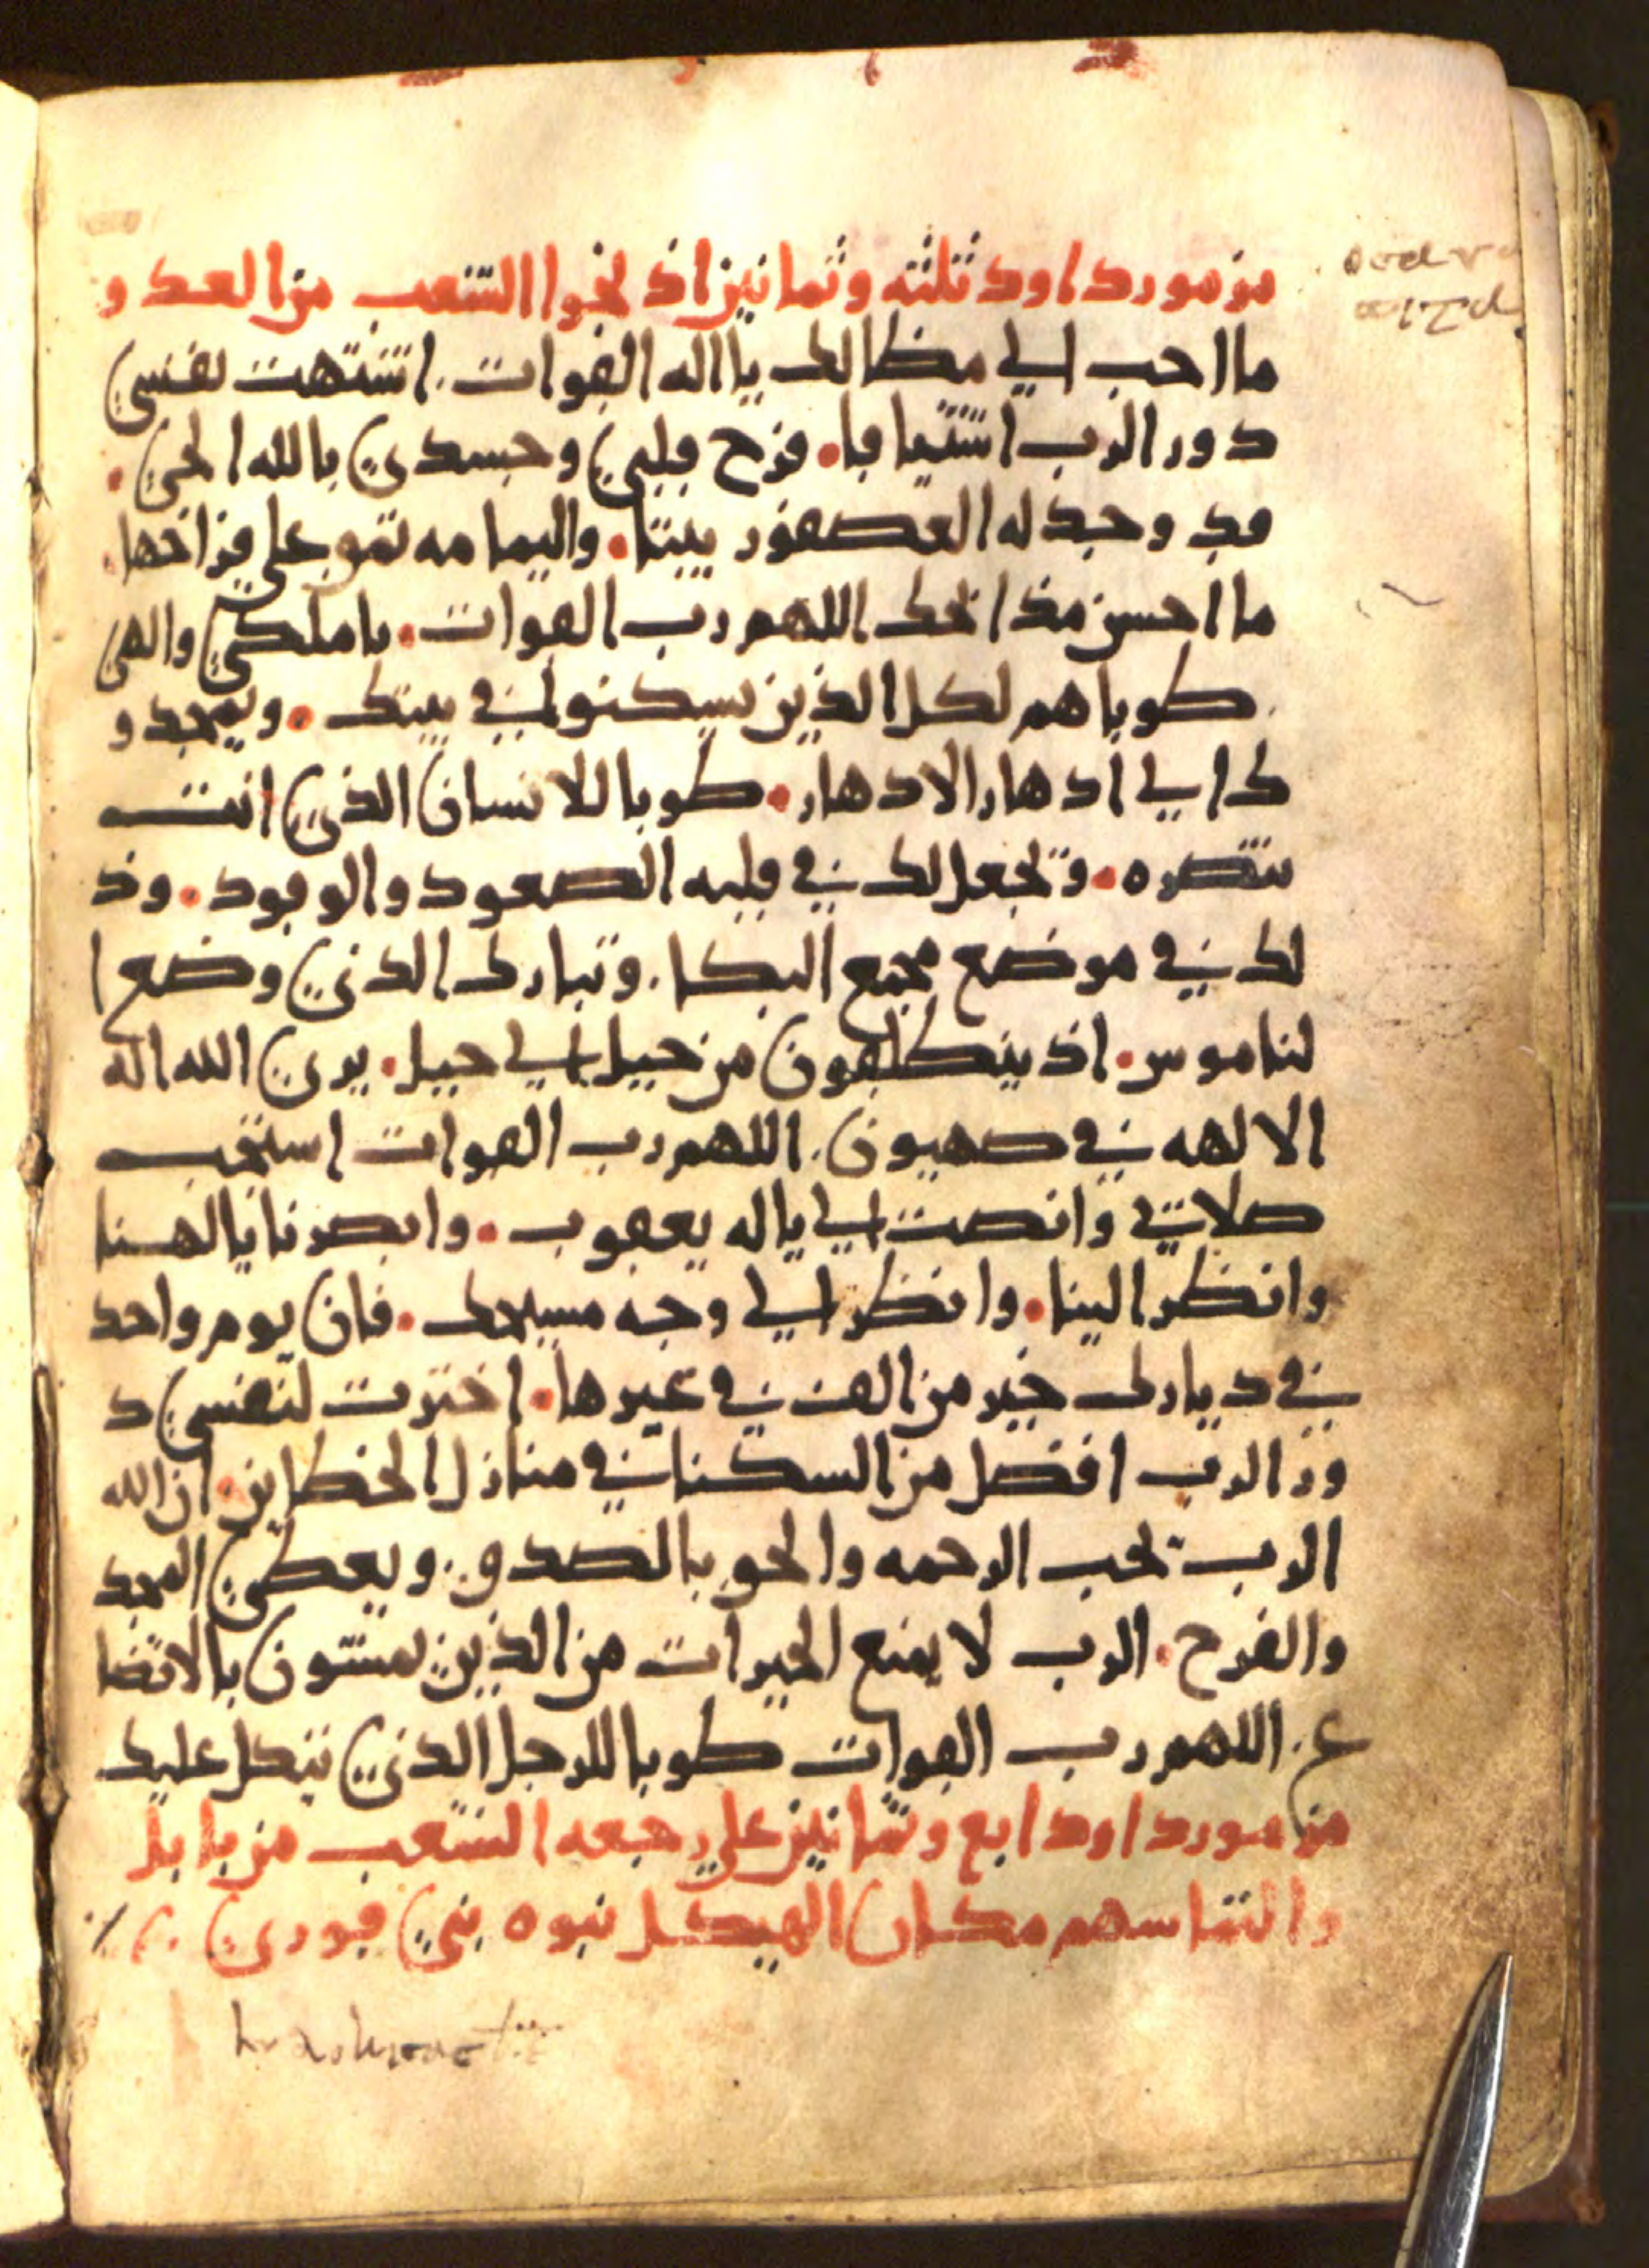 مزمور داود ثلثه وثمانين اذ نجوا الشعب من العدو
ما احب الي مظالك يا اله القوات. اشتهت نفسي
دور الرب اشتياقا. فرح قلبي وجسدي بالله الحي.
قد وجد له العصفور بيتا. واليمامه تقو علي فراخها.
ما احسن مذابحك اللهم رب القوات. يا ملكي والهي
طوباهم لكل الذين يسكنون في بيتك. ويمجدو
ك الي ادهار الادهار. طوبا للانسان الذي انت
تنصره. وتجعل لك في قلبه الصعود والوقود. وذ
لك في موضع مجمع البكا. وتبارك الذي وضع ا
لناموس. اذ ينطلقون من جبل الي جبل. يري الله اله
الالهه في صهيون. اللهم رب القوات استجب
صلاتي وانصت الي ياله يعقوب. وابصرنا يالهنا
وانظر الينا. وانظر الي وجه مسيحك. فان يوم واحد
في ديارك خير من الف في غيرها. اخترت لنفسي د
ور الرب افضل من السكنا في منازل الخطاين. ان الله
الرب تحب الرحمه والحق بالصدق. ويعطي المجد
والفرح. الرب لا يمنع الخيرات من الذين يمشون بالاتضا
ع. اللهم رب القوات طوبا للرجل الذي يتكل عليك
مزمور داود اربع وثمانين علي رجعه الشعب من بابل
والتماسهم مكان الهيكل نبوه بني قوري